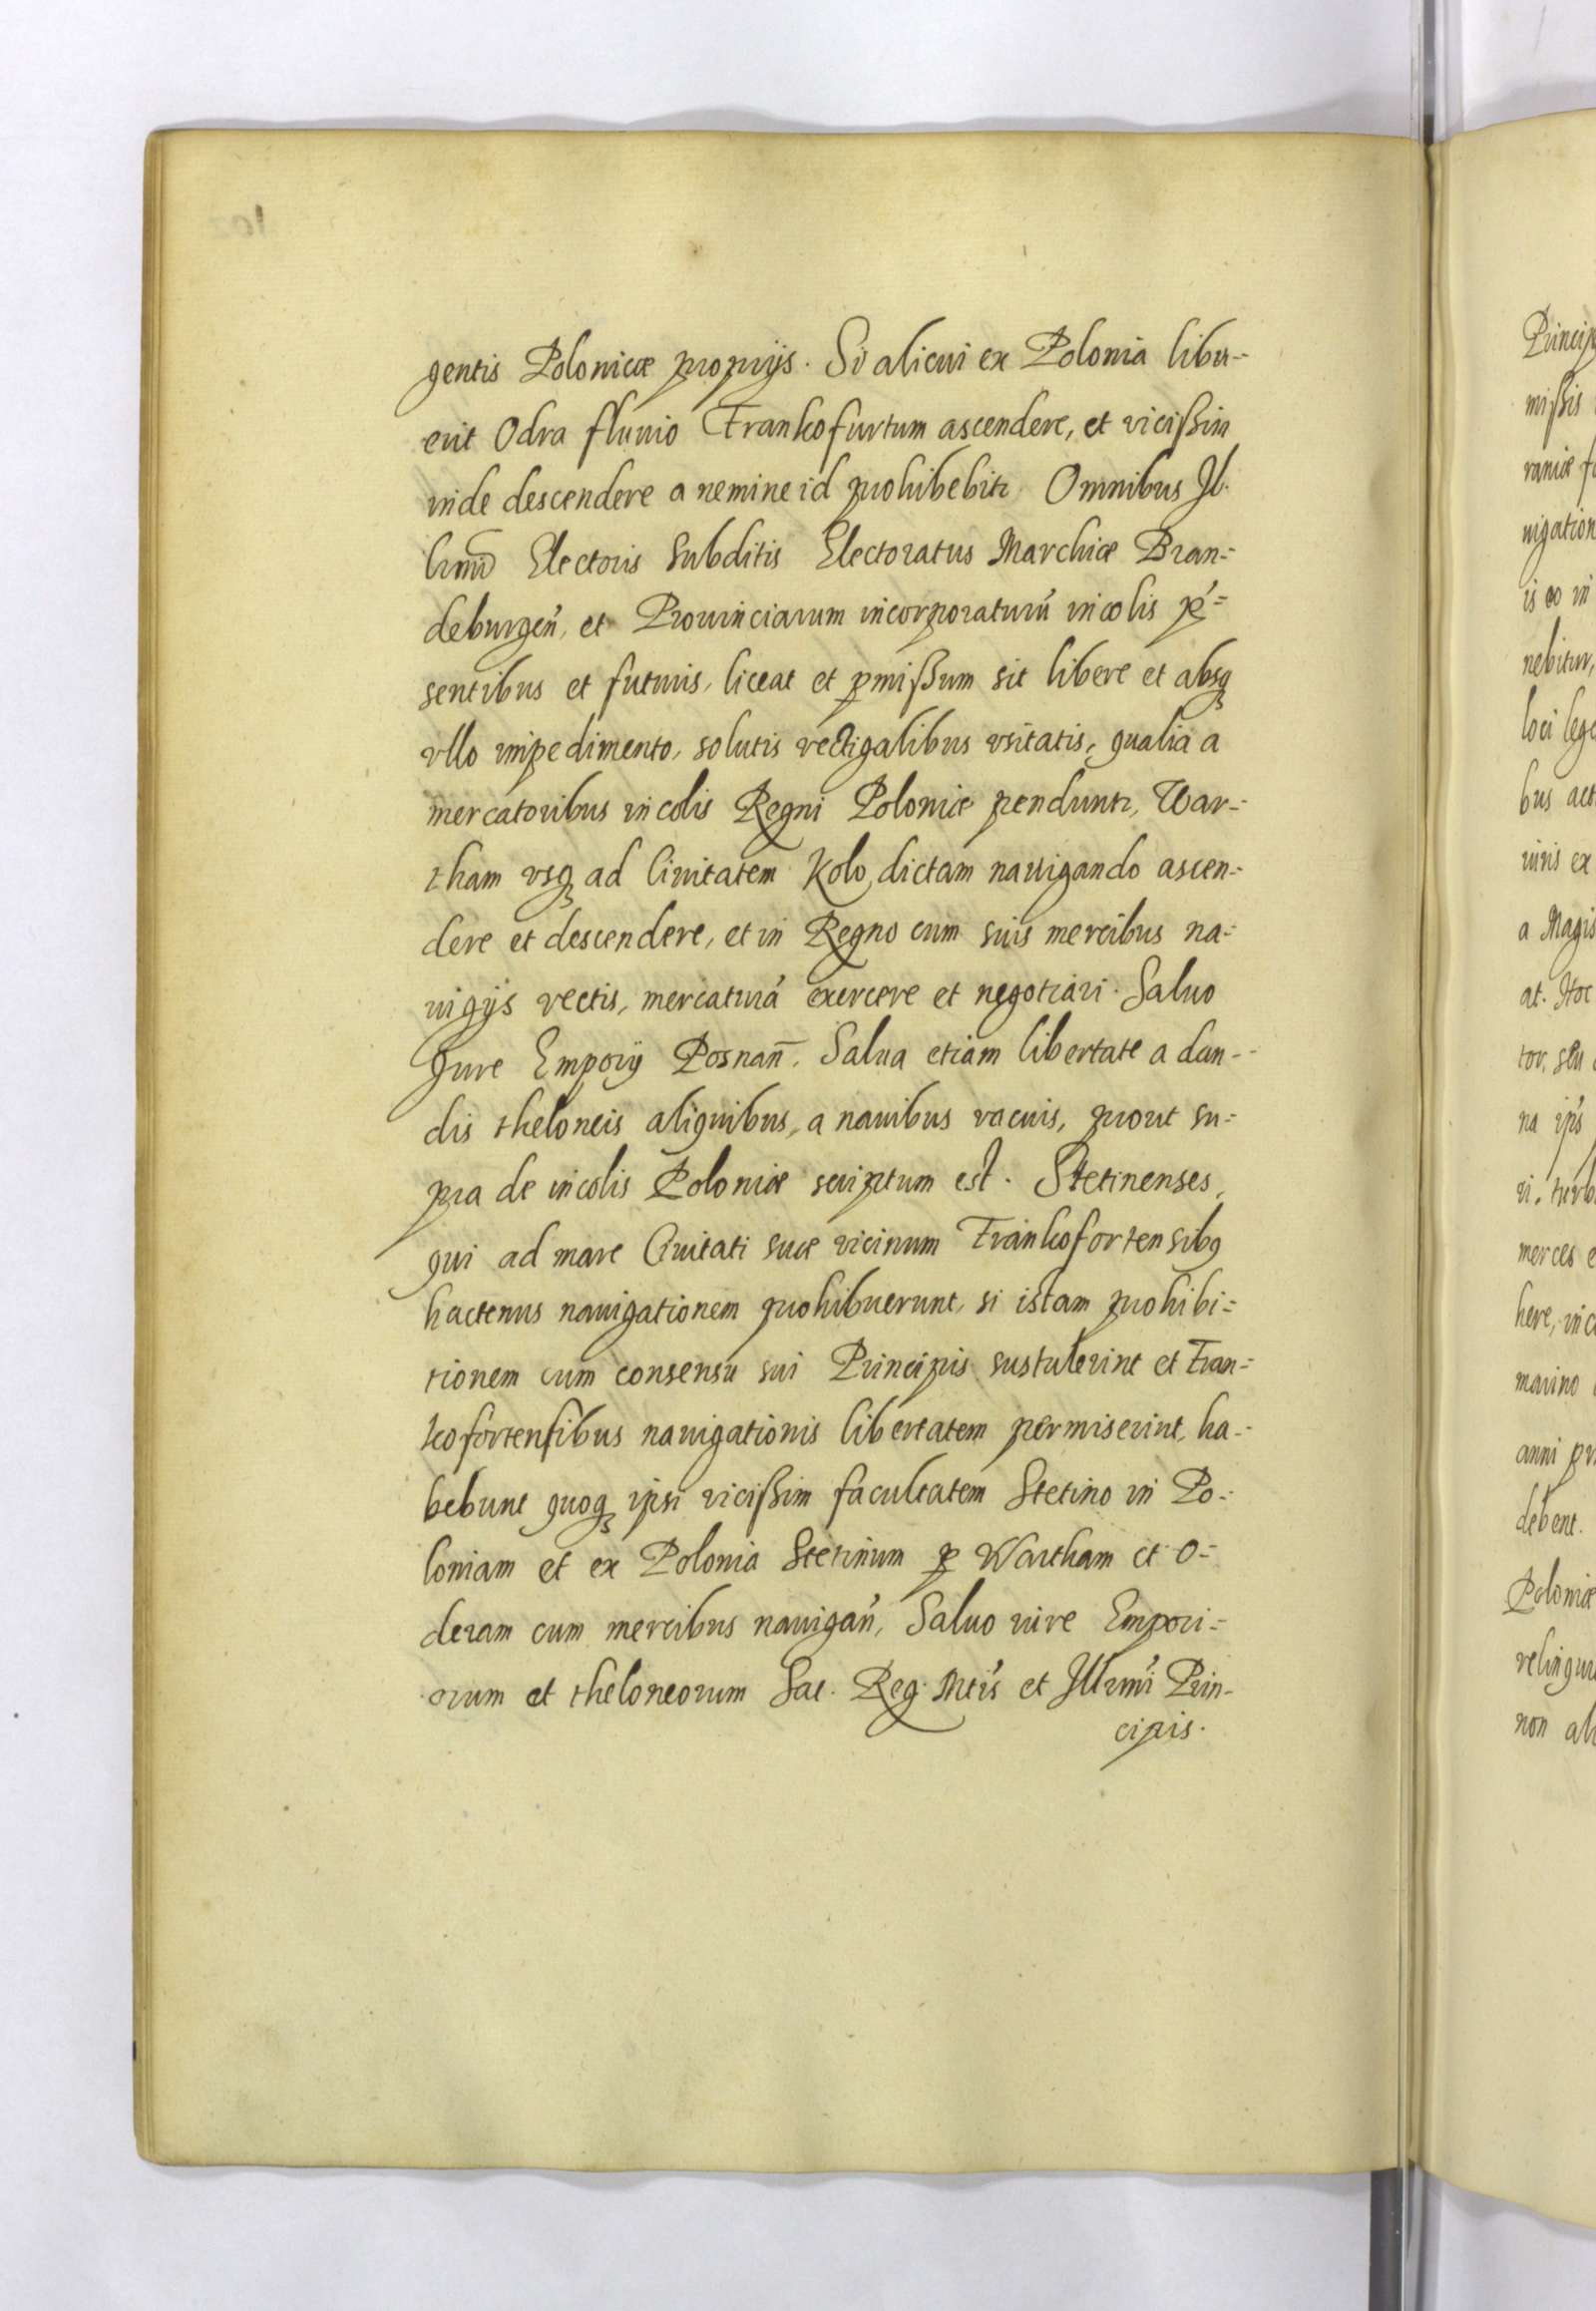 gentis Polonicæ proprijs. Si alicui ex Polonia libu-
erit Odra fluuio Frankofurtum ascendere, et vicißim
inde descendere a nemine id prohibebitr Omnibus Il-
Electoris Subditis Electoratus Marchiæ Bran-
deburgeñ, et Prouinciarum incorporatarũ incolis p̃-
sentibus et futuris, liceat et pmißum sit libere et absq
vllo impedimento, solutis vectigalibus vsitatis, qualia a
mercatoribus incolis Regni Poloniæ penduntr, War-
tham vsq ad Ciuitatem Kolo dictam nauigando ascen-
dere et descendere, et in Regno cum suis mercibus na-
uigijs vectis, mercaturã exercere et negotiari. Saluo
Jure Emporij Posnañ. Salua etiam libertate a dan-
dis theloneis aliquibus, a nauibus vacuis, prout su-
pra de incolis Poloniæ scriptum est. Stetinenses,
qui ad mare Ciuitati suæ vicinum Frankofortensibq
hactenus nauigationem prohibuerunt, si istam prohibi-
tionem cum consensu sui Principis sustulerint et Fran-
kofortensibus nauigationis libertatem permiserint, ha-
bebunt quoq ipsi vicißim facultatem Stetino in Po-
loniam et ex Polonia Stetinum p Wartham et O-
deram cum mercibus nauigañ, Saluo iure Empori-
orum et theloneorum Sac. Reg. Mtis et Illrmi Prin-
cipis.
Princip
mißis
raniæ fu
uigation
is eo in
nebitur,
loci lege
bus act
uiris ex
a Magis
at. Hoc
tor, seu
na ips
ri, turb
merces e
here, in c
marino
anni pr
debent.
Poloniæ
relinqu
non ali